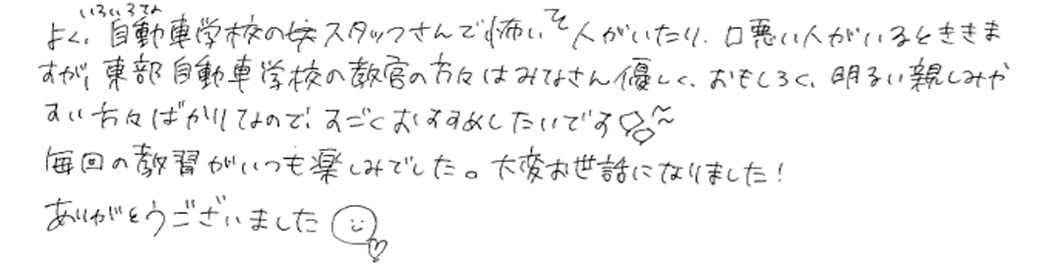 よく、いろいろな自動車学校のスタッフさんで怖い人がいたり、口悪い人がいるとききま
すが、東部自動車学校の教官の方々はみなさん優しく、おもしろく、明るい親しみや
すい方々ばかりなので、すごくおすすめしたいです
毎回の教習がいつも楽しみでした。大変お世話になりました！
ありがとうございました